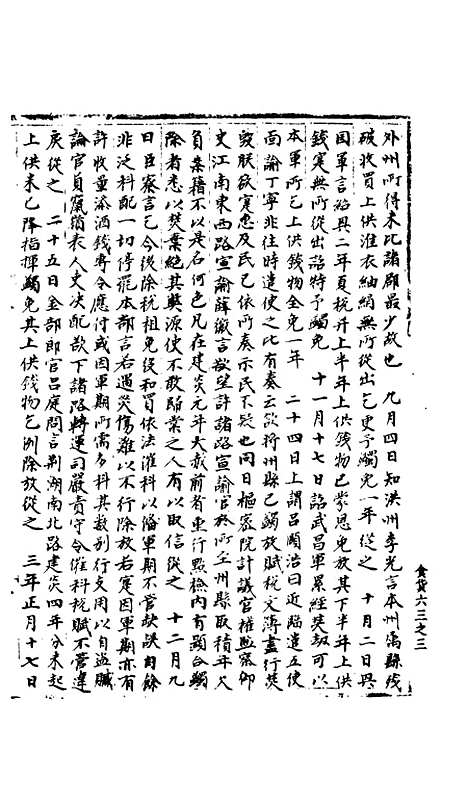 外州所得未比諸郡最少故也　九月四日知洪州李光言本州属縣殘
破收買上供淮衣紬絹無所從出乞更予蠲免一年從之　十月二日興
國軍言紹興二年夏稅并上半年上供錢物已蒙恩免放其下半年上供
錢寔無所從出詔特予蠲免　十一月十七日詔武昌軍累經英刼可以
本軍所乞上供錢物全免一年　二十四日上謂呂頤浩曰近臨遣五使
面諭丁寧非往時遣使之比有奏云欲將州縣已蠲放賦稅文簿盡行焚
毀朕欲寔惠及民已依所奏示民不疑也同日樞密院計議官權監察御
史江南東西路宣諭薛徽言欲望許諸路宣諭官於所至州縣取積年欠
負案籍不以是名何色凡在建炎元年大赦前者重行點檢內有顯合蠲
除者悉以焚棄絕其獎源使不敢歸業之人有以取信從之　十二月九
日臣寮言乞今後除稅租免役和買依法催科以備軍期不管缺誤自餘
非泛科配一切停罷本部言若遇災傷難以不行除放若寔因軍期亦有
許收量添酒錢等令應付或因軍期所需多科其數別行支用以自盜贓
論官員竄嶺表人吏決配欲下諸路轉運司嚴責守令催科稅賦不管違
戾從之　二十五日金部郎官呂庭問言荆湖南北路建炎四年分未起
上供未已降指揮蠲免其上供錢物乞例除放從之　三年正月十七日
食貨六三之三